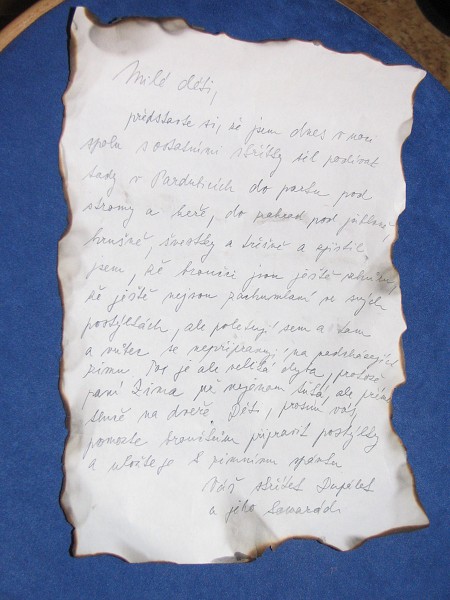 Milé děti,
představte si, že jsem dnes v noci
spolu s ostatními skřítky šel podívat
tady v Pardubicích do parku pod
stromy a keře, do zahrad pod jabloně,
hrušně, švestky a třešně a zjistil
jsem, že broučci jsou ještě vzhůru,
že ještě nejsou zachumlaní ve svých
postýlkách, ale poletují sem a tam
a vůbec se nepřipravují na nadcházející
zimu. To je ale veliká chyba, protože
paní Zima už nejenom ťuká, ale přímo
na dveře. Děti, prosím vás,
pomozte broučkům připravit postýlky
a uložte je k zimnímu spánku
Váš skřítek Dupálek
a jeho kamarádi